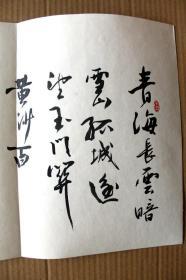 青海長雲暗
雪山孤城遥
望玉門關
黄沙百